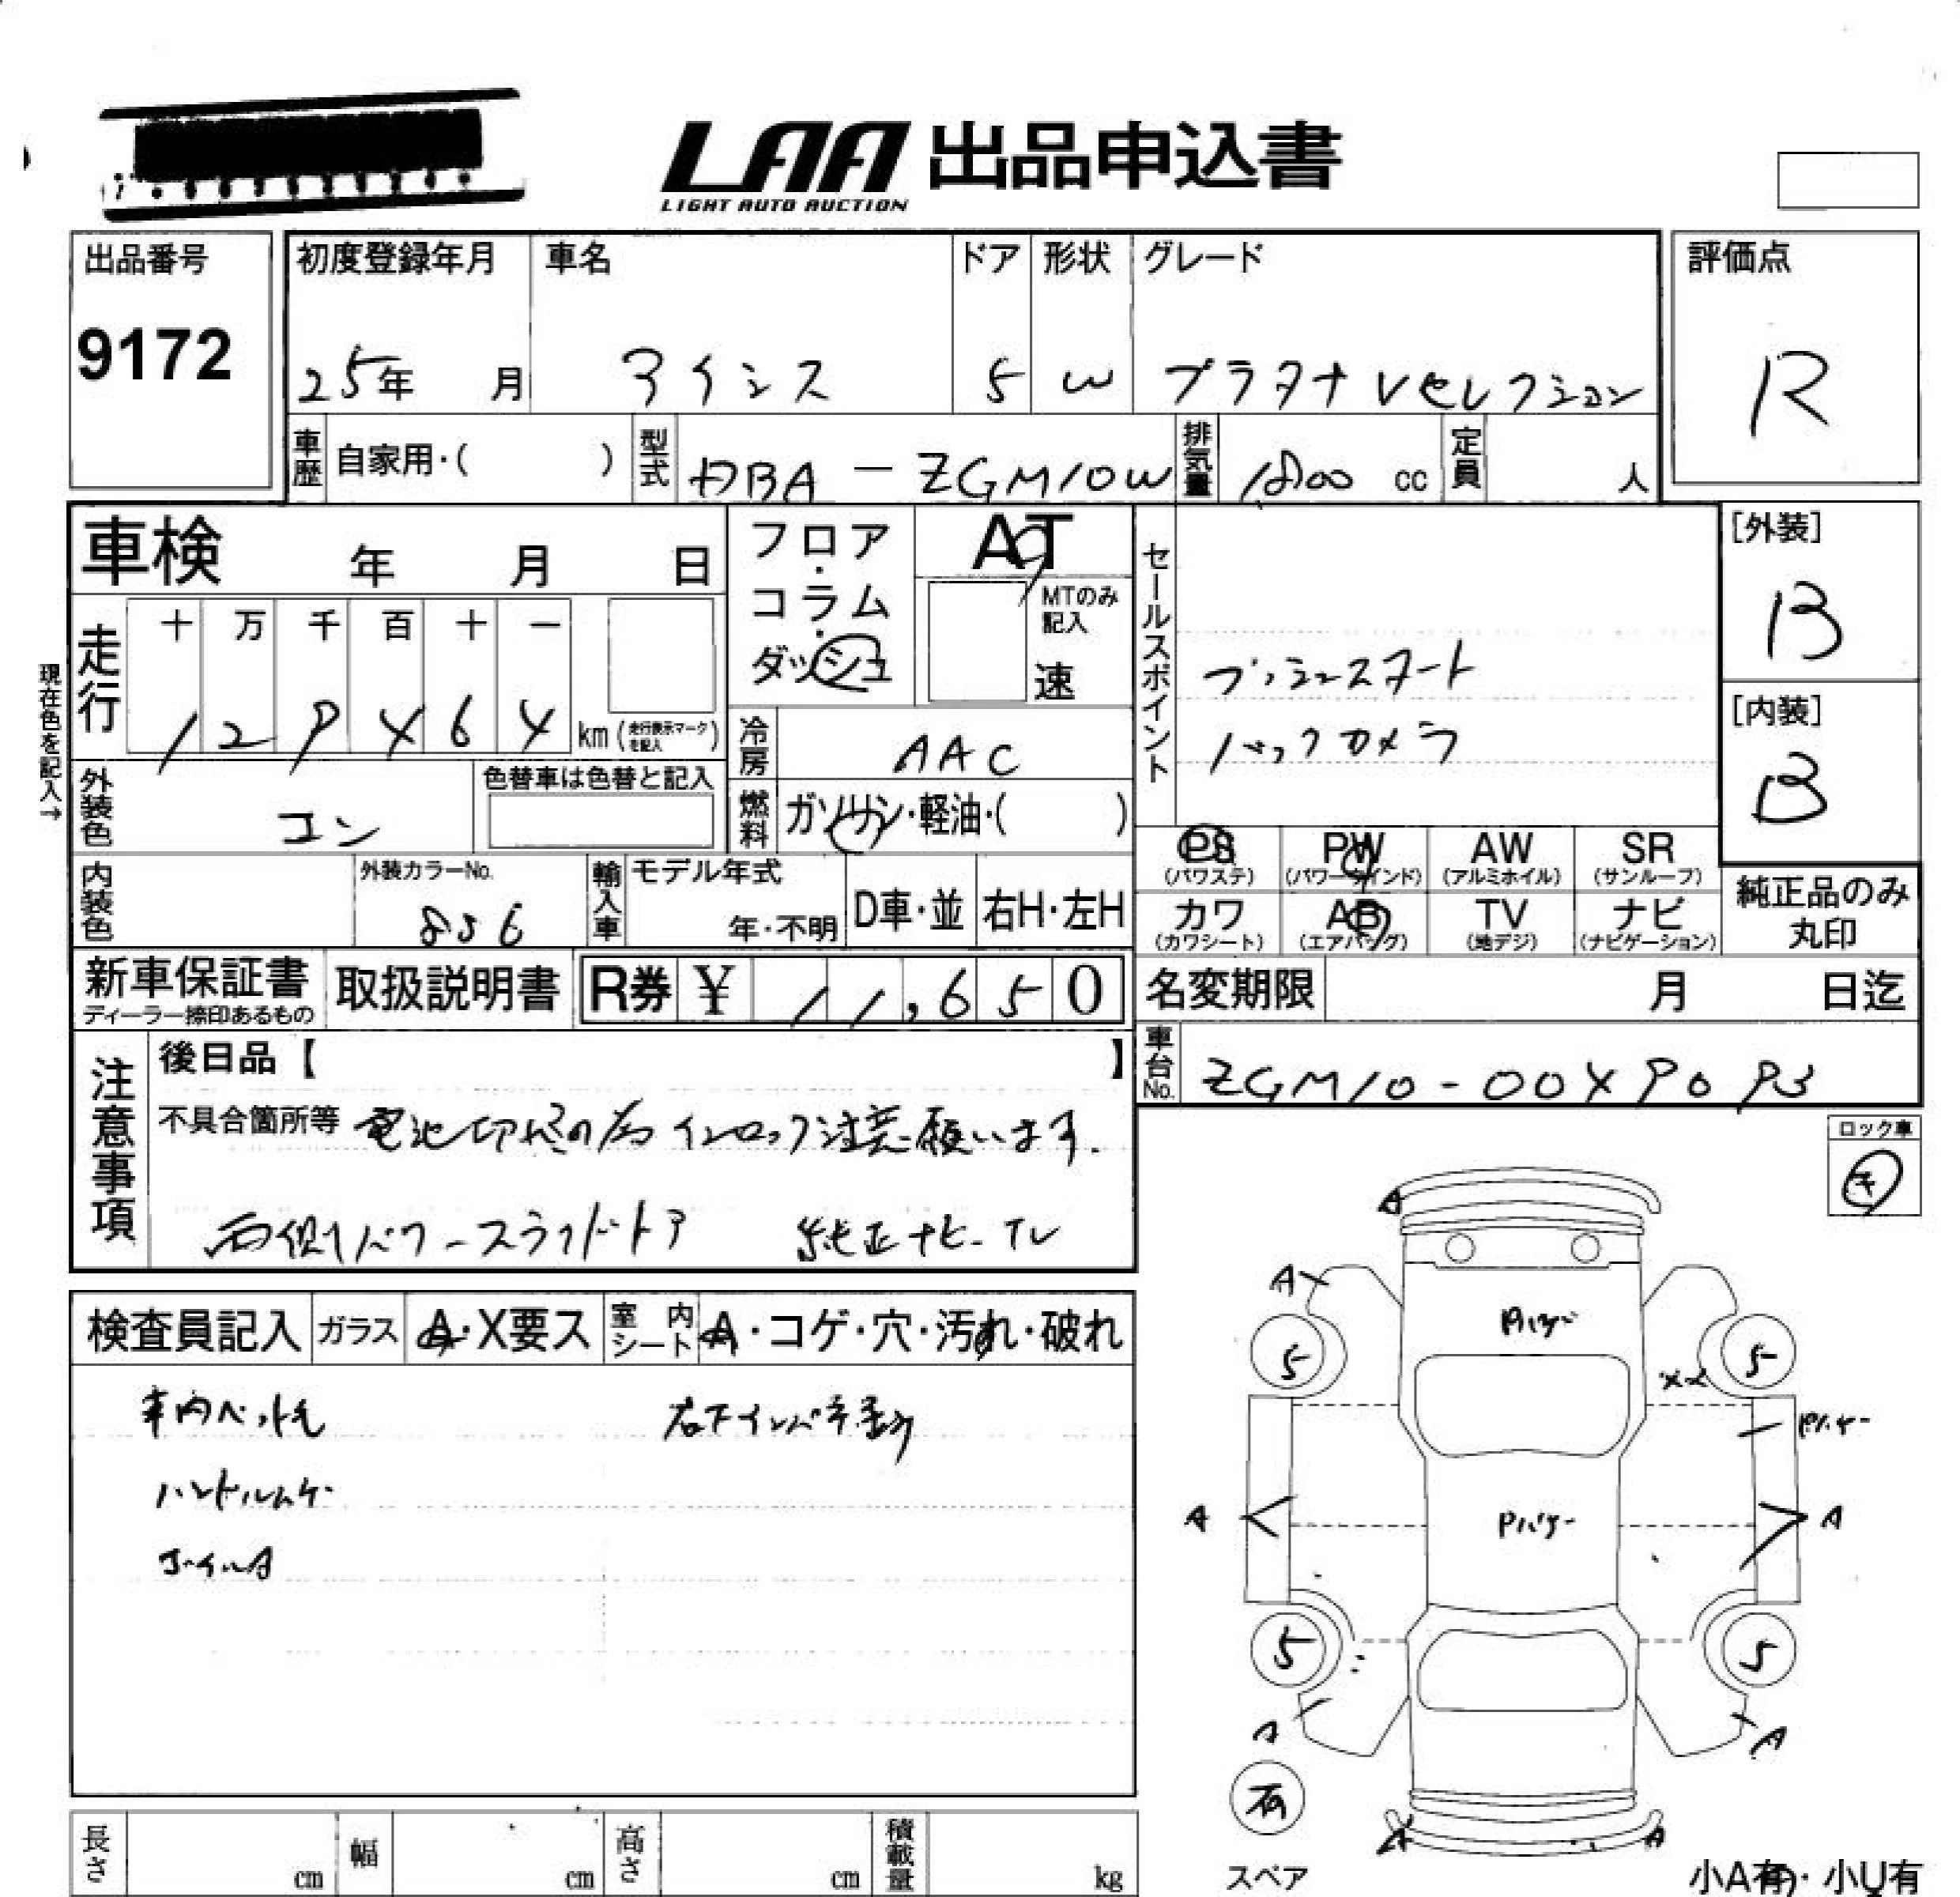 LAA 出品申込書
LIGHT AUTO AUCTION
出品番号
9172
初度登録年月
25年 月
車名
アイシス
ドア
5
形状
W
グレード
プラタナ Vセレクション
評価点
R
車歴 自家用・( )
型式 DBA-ZGM10W
排気量 1800 cc
定員 人
車検 年 月 日
フロア・コラム・ダッシュ
AT
MTのみ記入
速
セールスポイント
プッシュスタート
バックカメラ
[外装]
B
[内装]
B
現在色を記入→
走行 十 万 千 百 十 一
1 2 9 4 6 4 km (走行表示マークを記入)
冷房 AAC
外装色 コン
色替車は色替と記入
燃料 ガソリン・軽油・( )
PS (パワステ)
PW (パワーウインド)
AW (アルミホイル)
SR (サンルーフ)
内装色
外装カラーNo.
856
輸入車 モデル年式
年・不明
D車・並
右H・左H
カワ (カワシート)
AB (エアバッグ)
TV (地デジ)
ナビ (ナビゲーション)
純正品のみ丸印
新車保証書
ディーラー捺印あるもの
取扱説明書
R券 ¥ 11,650
名変期限 月 日迄
車台No. ZGM10-0049093
注意事項
後日品【 】
不具合箇所等 電池切れの為 インロック注意願います.
両側パワースライドドア 純正ナビ-TV
ロック車
キ
検査員記入 ガラス A・X要ス 室内シート A・コゲ・穴・汚れ・破れ
車内ペット毛 右下インパネ歪み
ハンドルムケ
ホイルA
A
A
Pハゲ
5
5
XX
Pハゲ
A
Pハゲ
A
5
5
A
A
有
スペア
A
A
小A有・小U有
長さ cm
幅 cm
高さ cm
積載量 kg